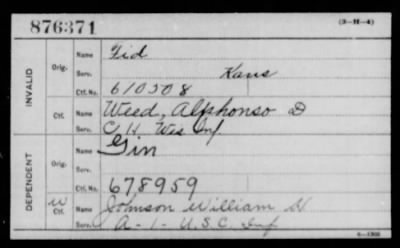 876371
(3-H-4)
INVALID
Orig.
Name Fid
Serv. Kans
Ctf. No. 610508
Ctf.
Name Weed, Alphonso D
Serv. C H Wis Inf
DEPENDENT
Orig.
Name Gin
Serv.
Ctf. No. 678959
W
Ctf.
Name Johnson William H
Serv. A-1-U.S.C. Inf